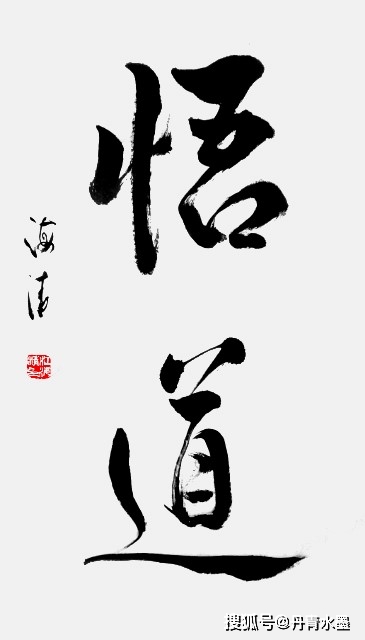 悟道
海涛
搜狐号@丹青水墨